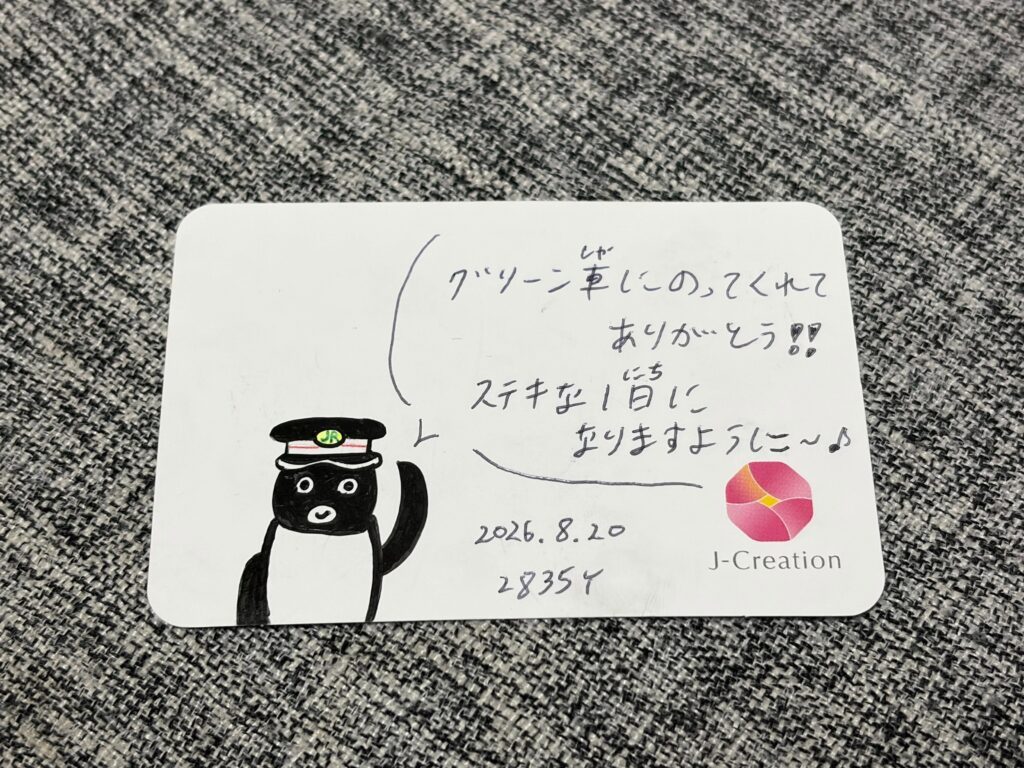 グリーン車にのってくれて
しゃ
ありがとう!!
ステキな1日に
にち
なりますように〜♪
JR
2026.8.20
2835Y
J-Creation